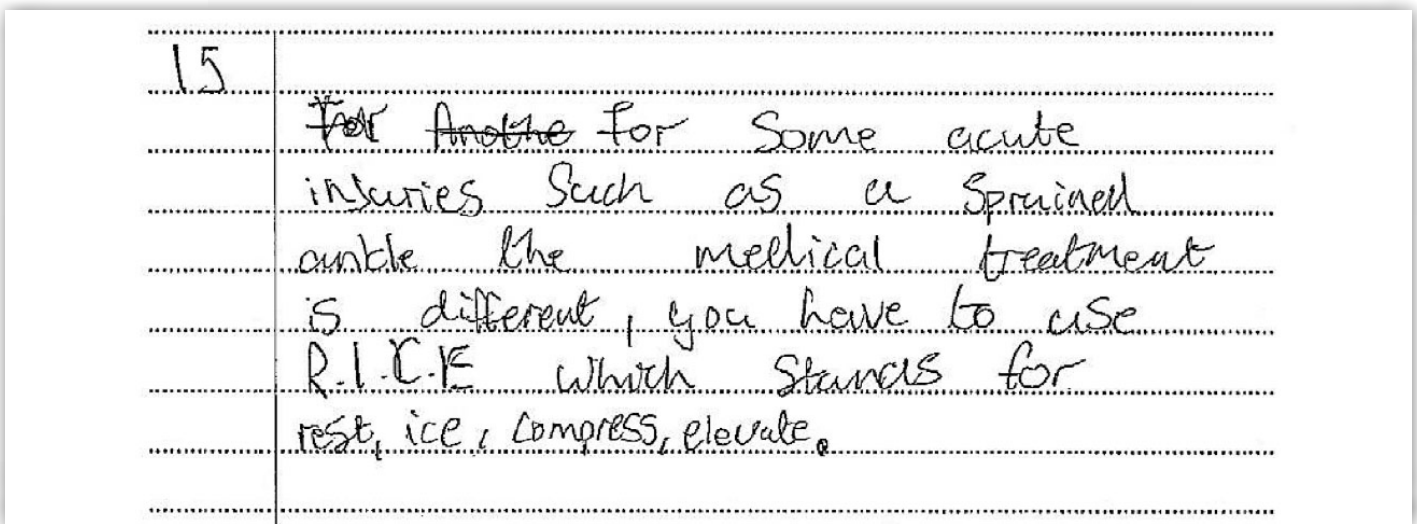 15
for some acute
injuries such as a sprained
ankle the medical treatment
is different, you have to use
R.I.C.E which stands for
rest, ice, compress, elevate.